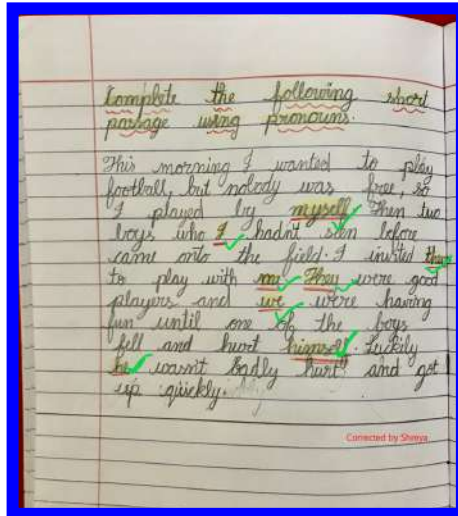 Complete the following short
passage using pronouns.
This morning I wanted to play
football, but nobody was free, so
I played by myself. Then two
boys who I hadn't seen before
came onto the field. I invited them
to play with me. They were good
players and we were having
fun until one of the boys
fell and hurt himself. Luckily
he wasn't badly hurt and got
up quickly.
Corrected by Shreya